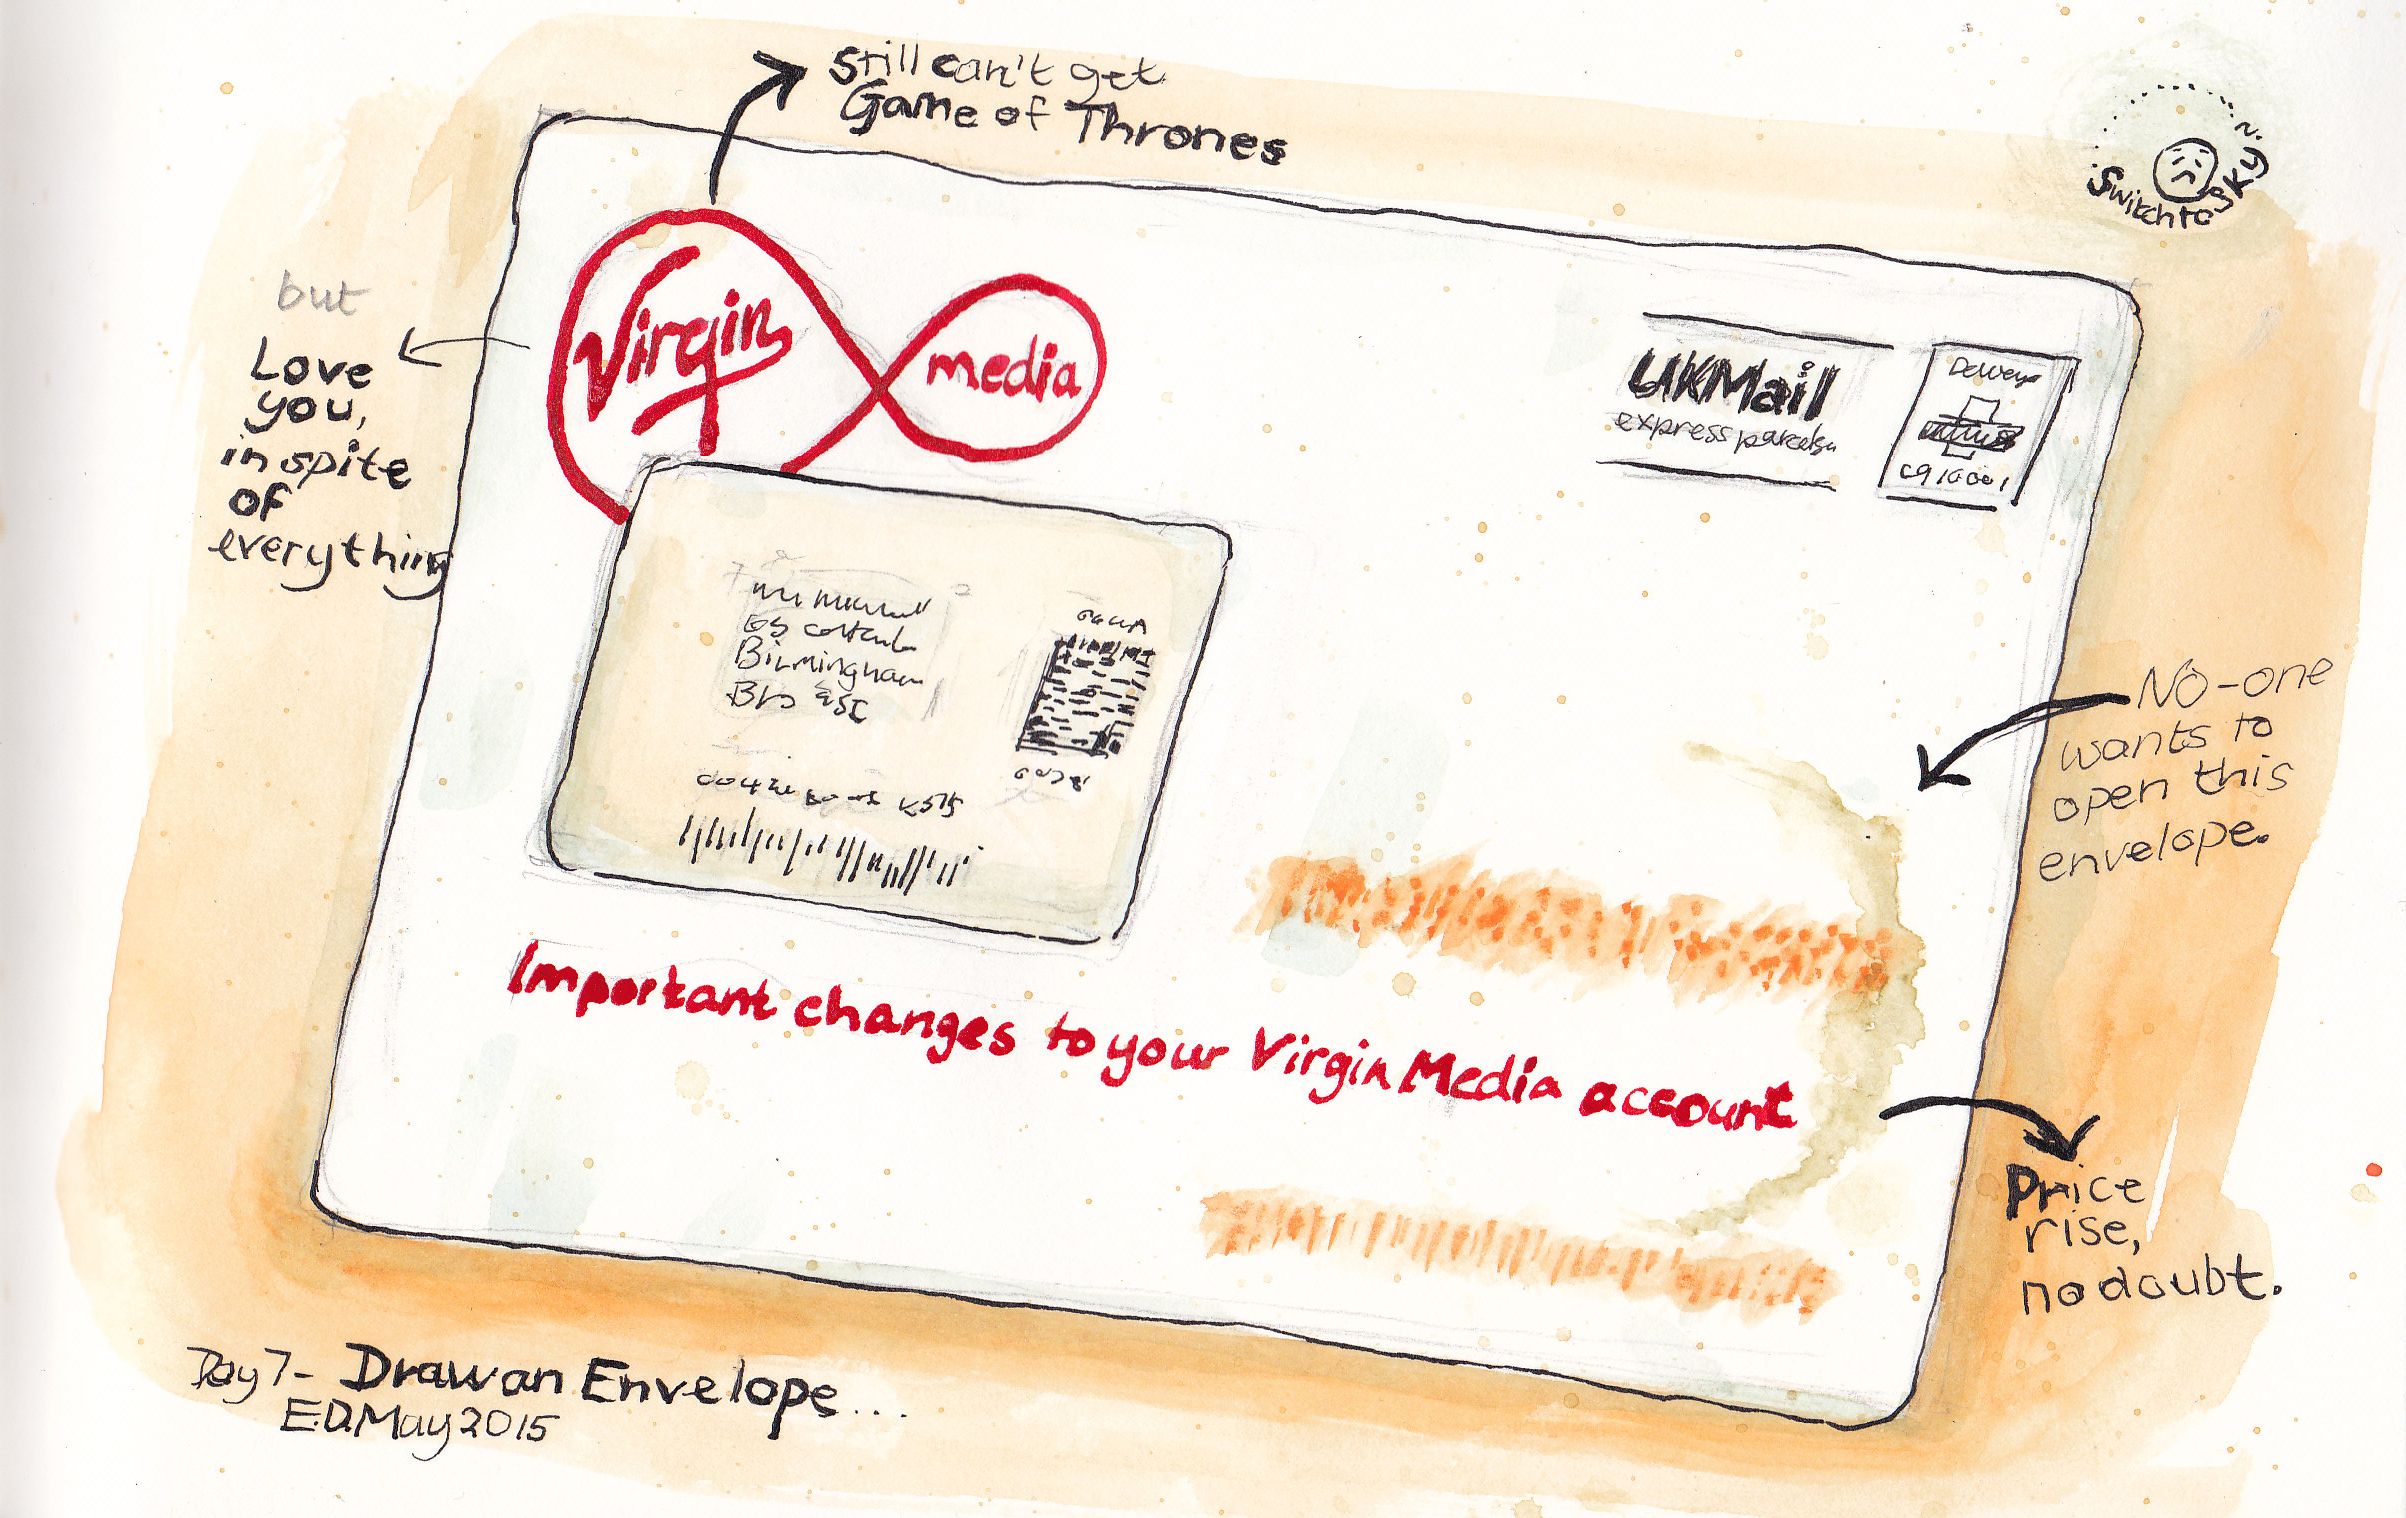 still can't get
Game of Thrones
Switch to Sky
but
Love
you,
in spite
of
everything
Virgin
media
UKMail
express parcels
Birmingham
No-one
wants to
open this
envelope.
Important changes to your Virgin Media account
Price
rise,
no doubt.
Day 7 - Draw an Envelope...
E.D.May 2015